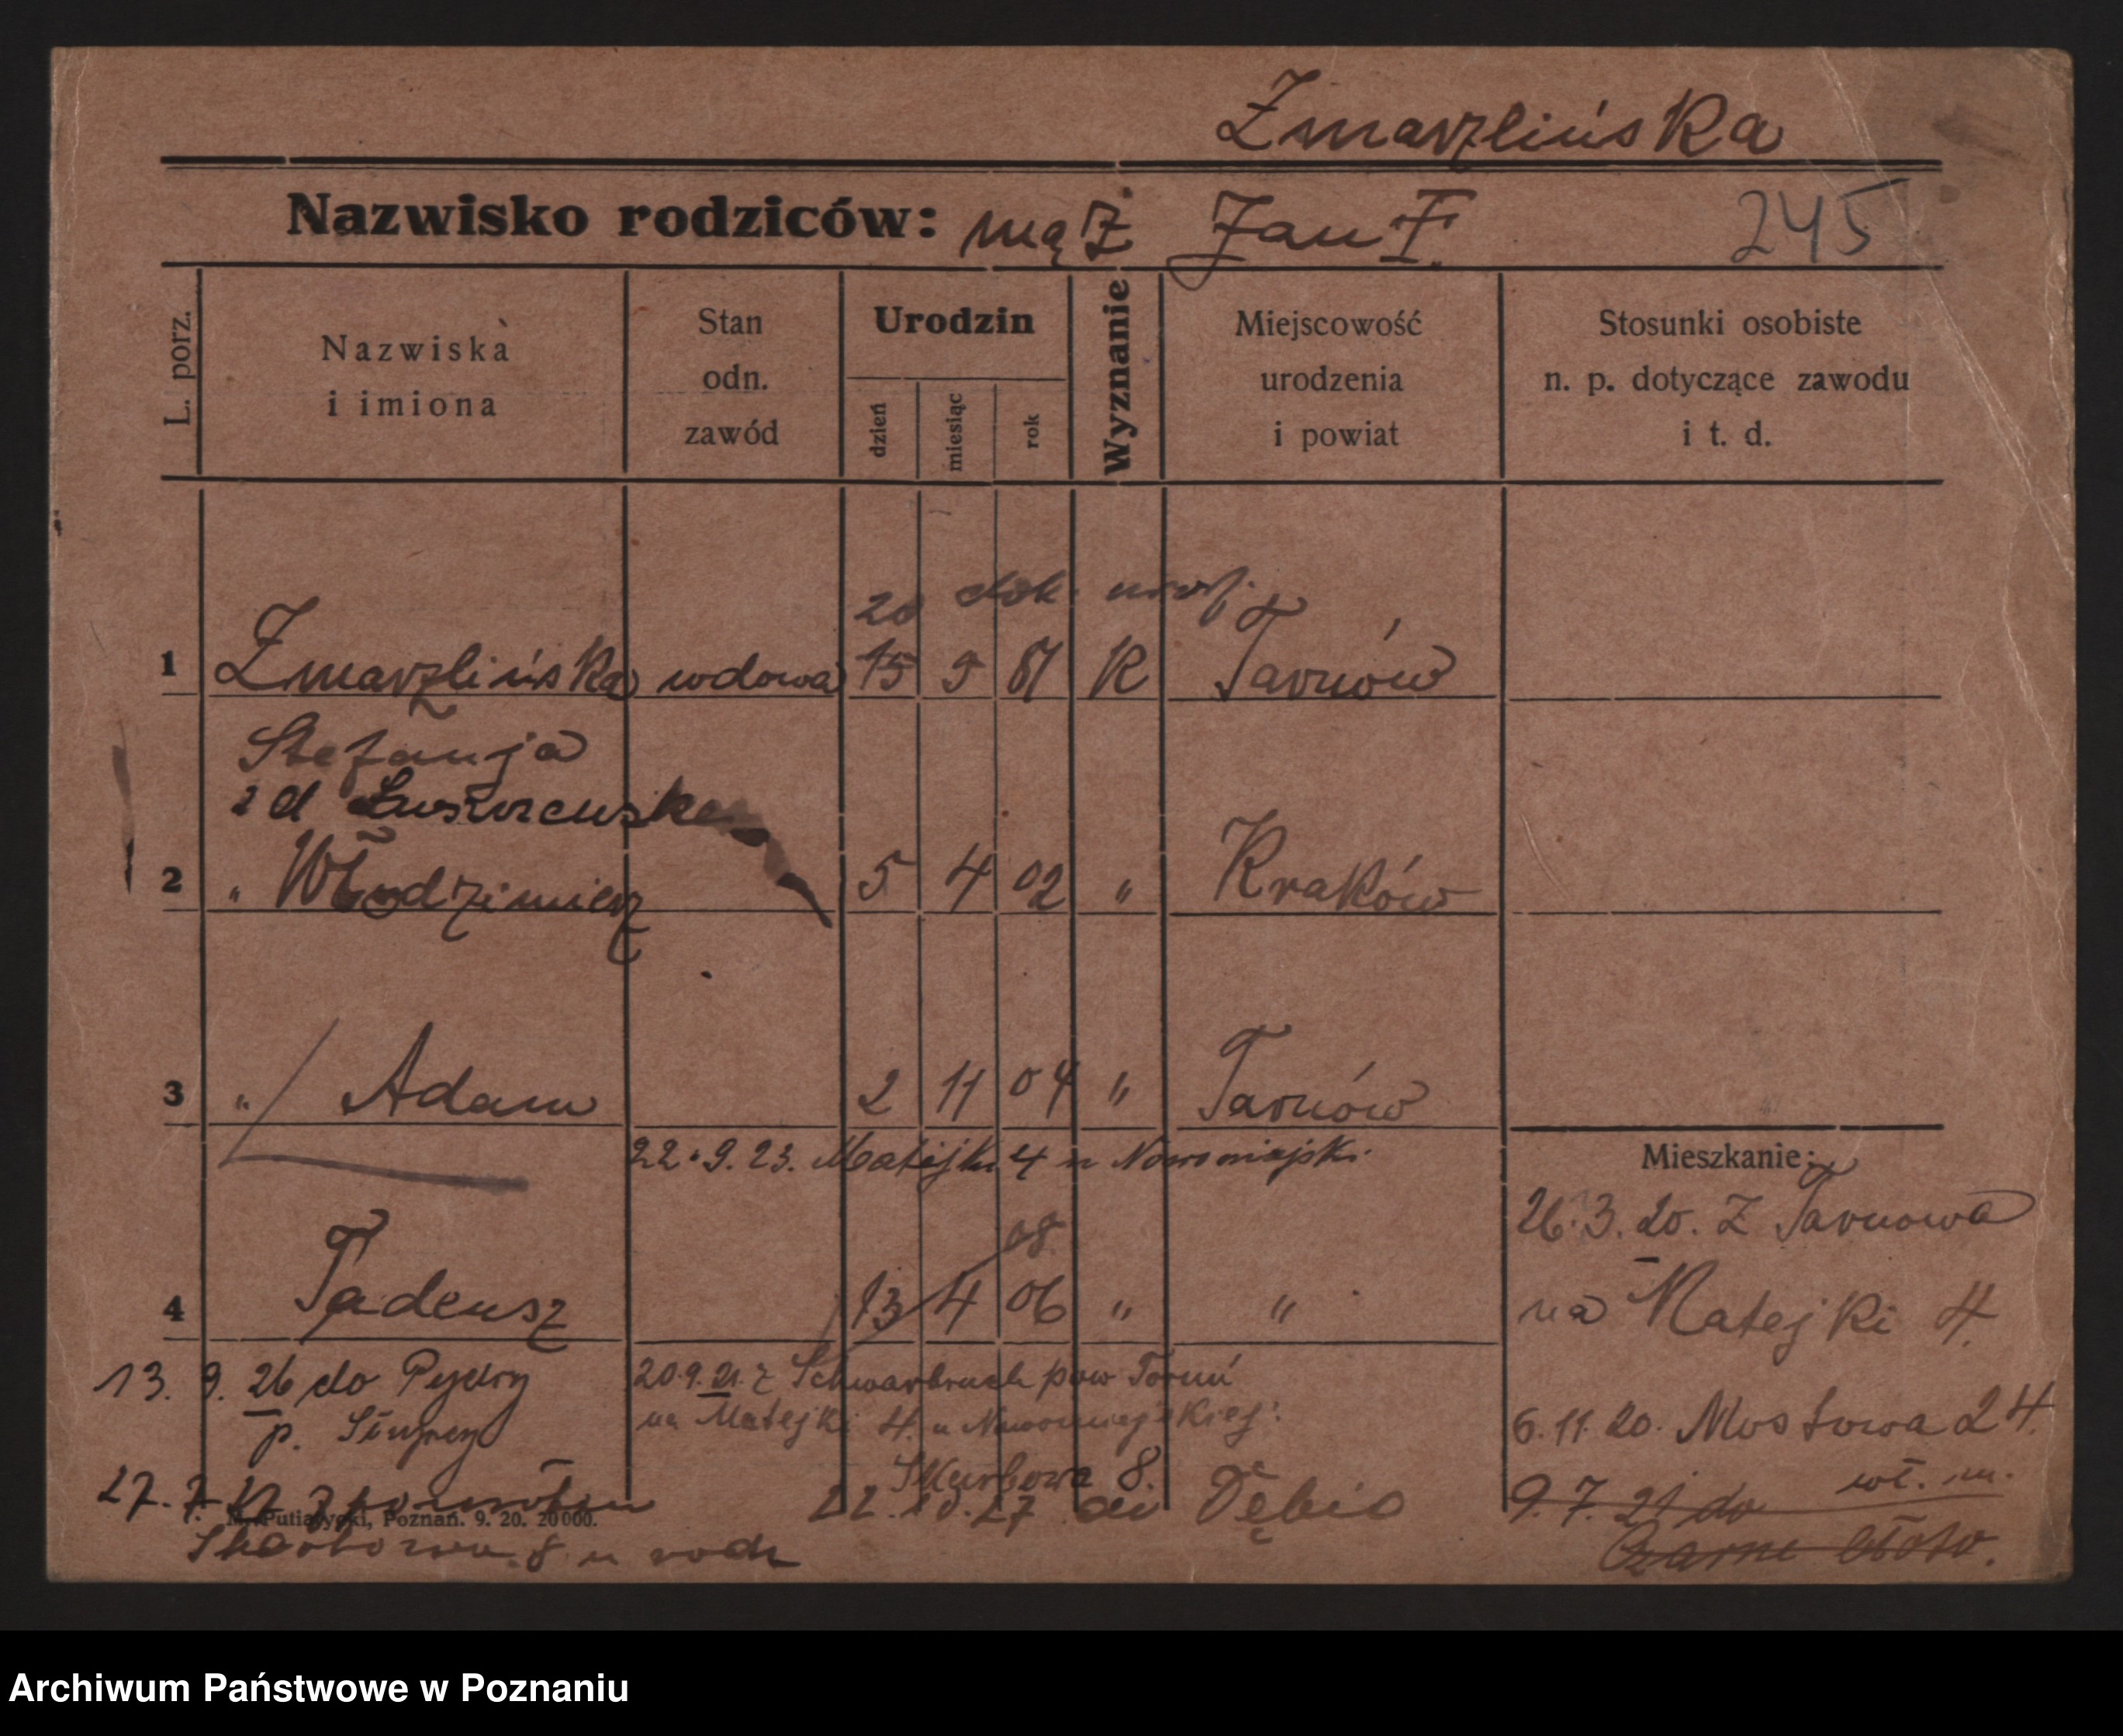 Zmarzlińska
Nazwisko rodziców: mąż Jan F. 245
L. porz.
Nazwiska
i imiona
Stan
odn.
zawód
Urodzin
dzień
miesiąc
rok
Wyznanie
Miejscowość
urodzenia
i powiat
Stosunki osobiste
n. p. dotyczące zawodu
i t. d.
20 dok.
1 Zmarzlińska wdowa 15 9 81 R Tarnów
Stefanja
2 " Włodzimierz 5 4 02 " Kraków
3 " Adam 2 11 04 " Tarnów
22.9.23. Matejki 4 u Nowomiejski.
Mieszkanie:
26.3.20. z Tarnowa
na Matejki 4.
08
4 Tadeusz 13 4 06 " "
13. 9. 26 do Pyzdry
p.
20.9.21. z Schwarbruch pow Toruń
na Matejki 4. u Nowomiejskiej
6.11.20. Mostowa 24.
Skarbowa 8.
27. 7.
22.10.27 do Dębic
9.7.21 do wł. m.
Czarne błoto.
Putiatycki, Poznań. 9. 20. 20000.
Skarbowa 8 u
Archiwum Państwowe w Poznaniu